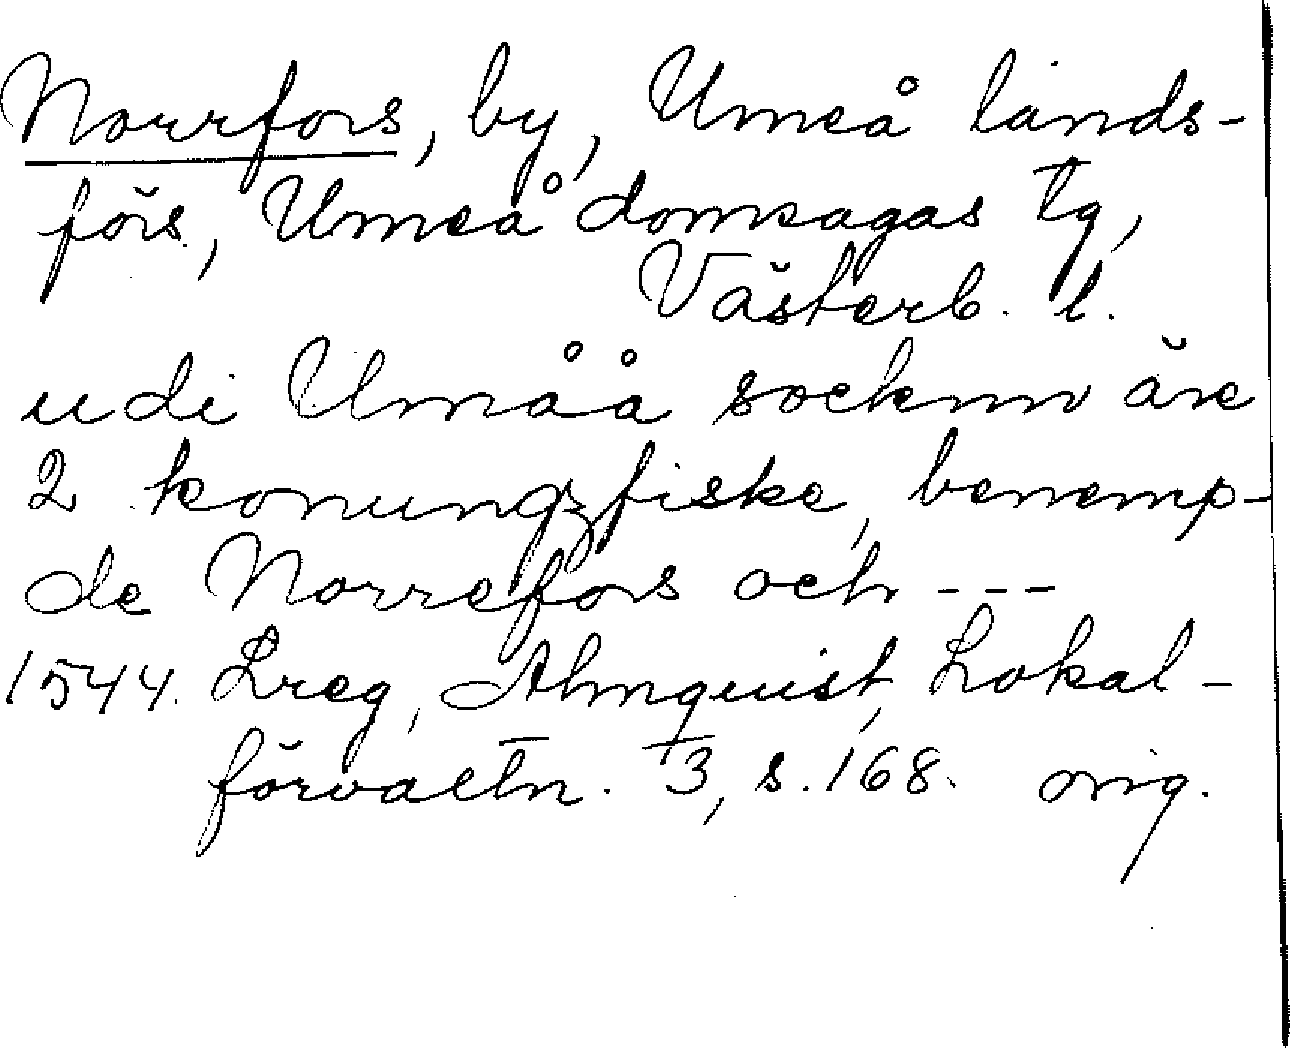 Norrfors, by, Umeå lands-
förs., Umeå domsagas tg,
Västerb. l.
udi Umåå socknnn äre
2 konungzfiske, benemp-
de Norrefors och ---
1544. Lreg, Almquist, Lokal-
förvaltn. 3, s. 168. orig.